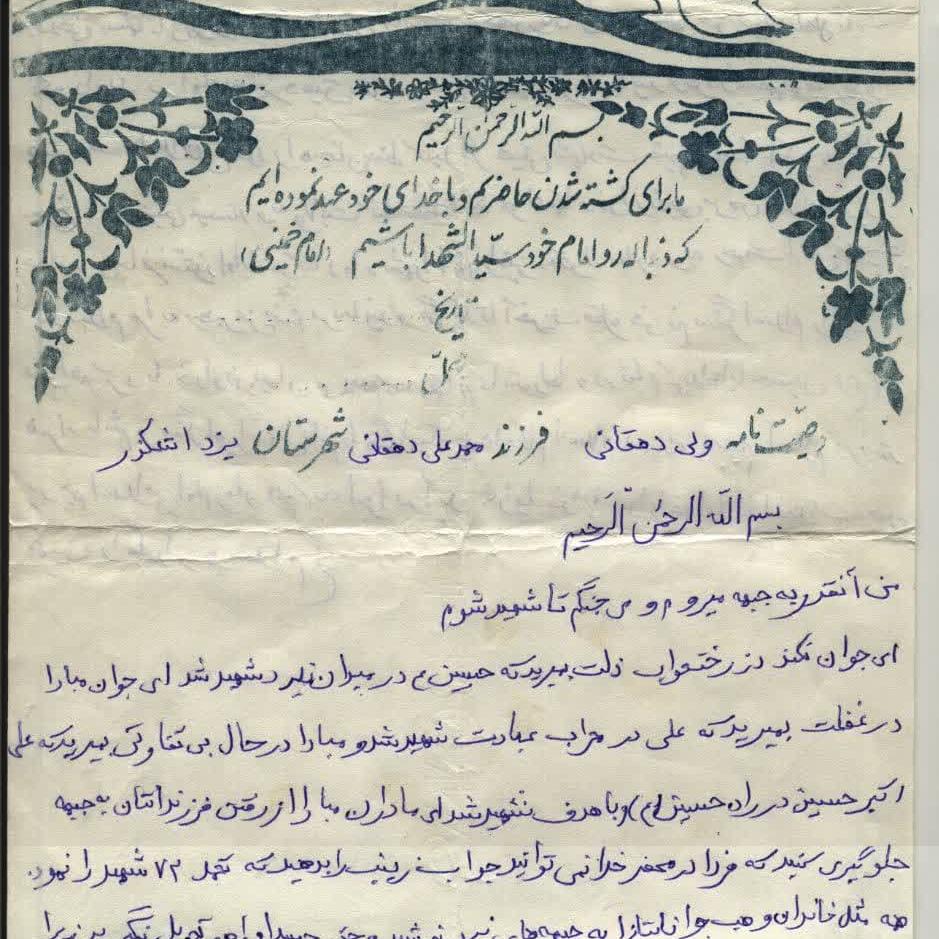 بسم الله الرحمن الرحیم
ما برای کشته شدن حاضریم و با خدای خود عهد نموده‌ایم
که دنباله‌رو امام خود سیدالشهدا باشیم (امام خمینی)
تاریخ
محل
وصیت نامه ولی دهقانی فرزند محمد علی دهقانی شهرستان یزد اشکذر
بسم الله الرحمن الرحیم
من آنقدر به جبهه میروم و می جنگم تا شهید شوم
ای جوان نکند در رختخواب ذلت بمیرید که حسین ع در میدان نبرد شهید شد ای جوان مبادا
در غفلت بمیرید که علی در محراب عبادت شهید شد و مبادا در حال بی تفاوتی بمیرید که علی
اکبر حسین در راه حسین (ع) و با هدف شهید شد ای مادران مبادا از رفتن فرزندانتان به جبهه
جلوگیری کنید که فردا در محضر خدا نمی توانید جواب زینب را بدهید که تحمل ۷۲ شهید را نمود
همه مثل خاندان وهب جوانانتان را به جبهه های نبرد بفرستید و حتی جسد او را هم تحویل نگیرید زیرا